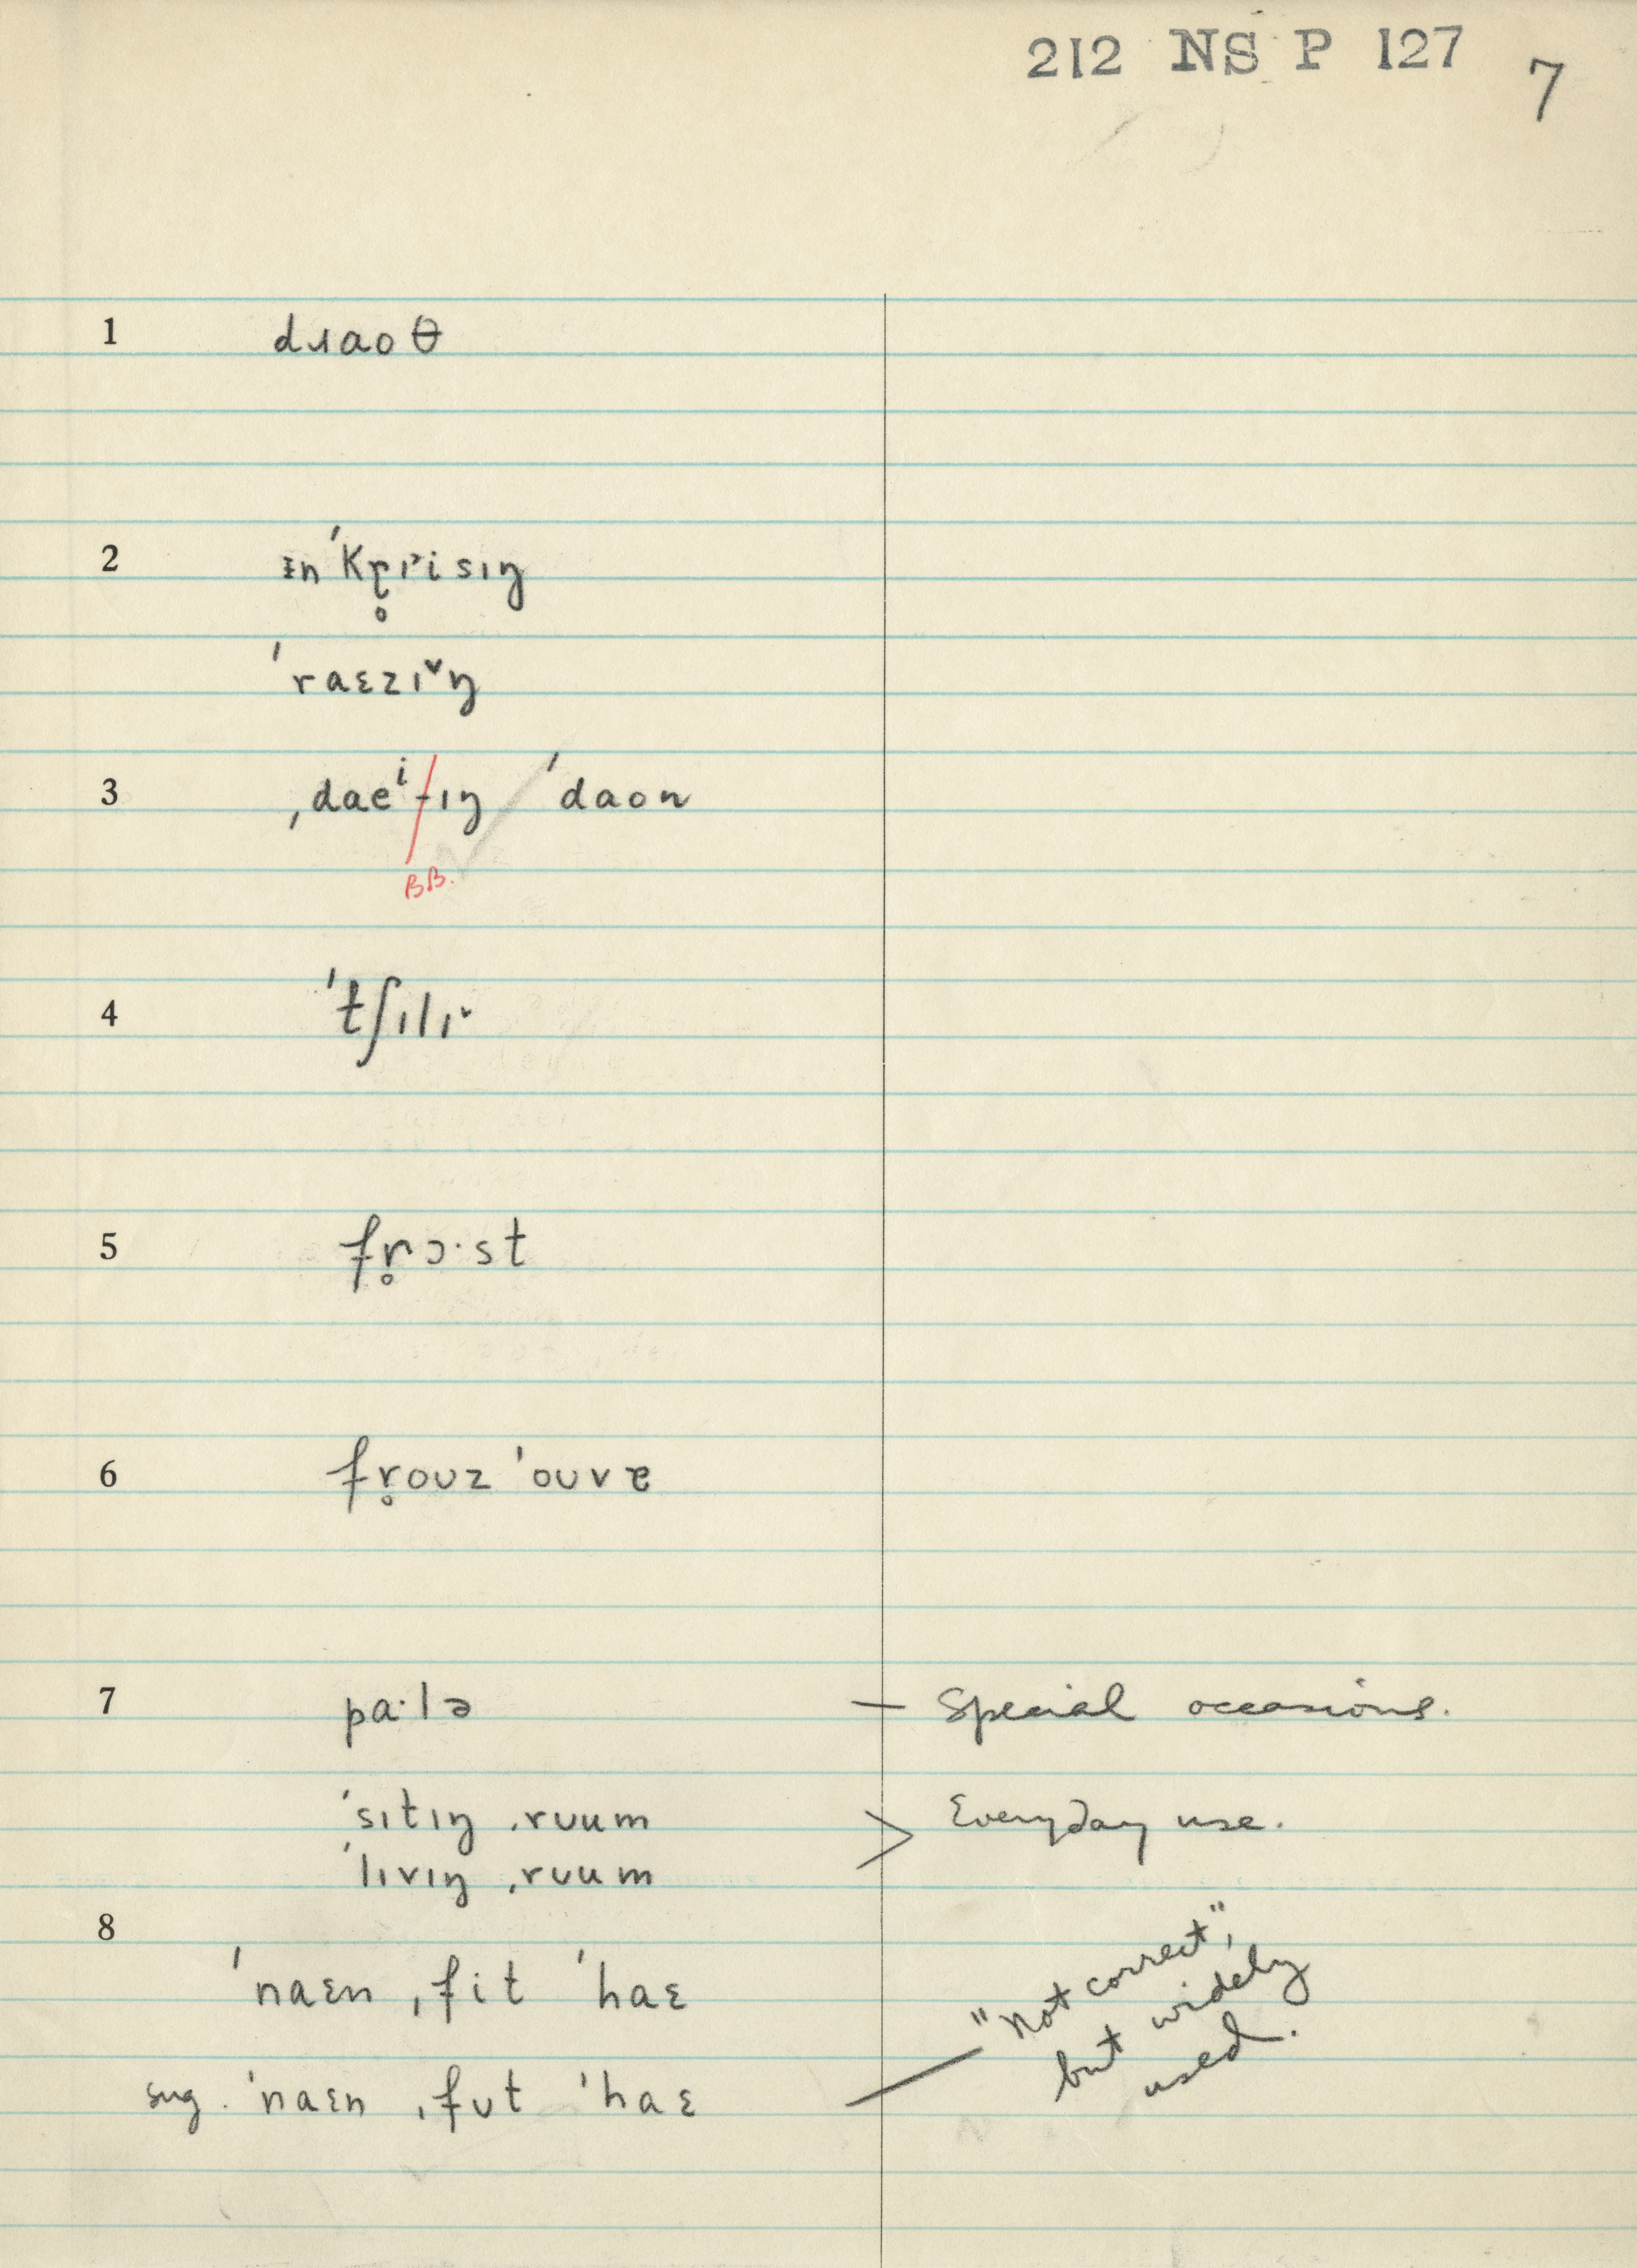 212 NS P 127 7
1 dɹaoθ
2 ɪn ˈkr̥ɪˇisɪŋ
ˈraɛzɪˇŋ
3 ˌdaeⁱ-ɪŋ ˈdaon
BB.
4 ˈtʃɪlɪˇ
5 fr̥ɔ·st
6 fr̥oʊz ˈoʊvɐ
7 pa·lə — Special occasions.
ˈsɪtɪŋ ˌrʊum > Everyday use.
ˈlɪvɪŋ ˌrʊum
8
ˈnaɛn ˌfit ˈhaɛ
sug. ˈnaɛn ˌfʊt ˈhaɛ — "not correct",
but widely
used.